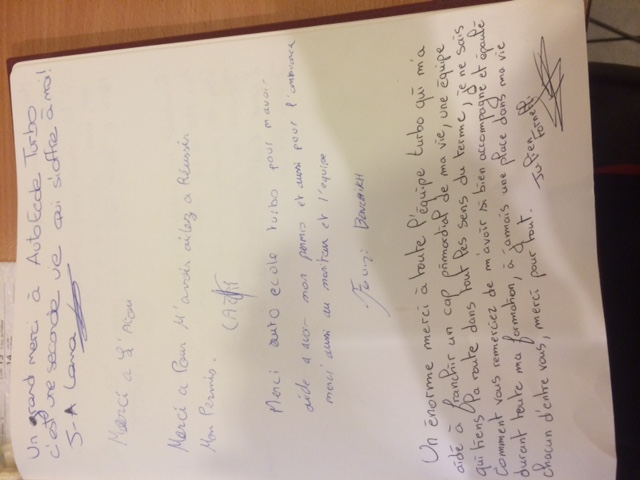 Un grand merci à AutoEcole Turbo
c'est une seconde vie qui s'offre à moi!
J-A Lama
Merci a
Merci a Pour M'avoir aidez a Réussir
Mon Permis.
Merci auto ecole turbo pour m'avoir
aide a avoir mon permis et aussi pour l'ambiance
merci aussi au moniteur et l'equipe
Faouzi BENCHIKH
Un énorme merci à toute l'équipe turbo qui m'a
aidé à franchir un cap primordial de ma vie, une équipe
qui tiens la route dans tout les sens du terme, je ne sais
comment vous remerciez de m'avoir si bien accompagné et épaulé
durant toute ma formation, à jamais une place dans ma vie
chacun d'entre vous, merci pour tout.
Julien